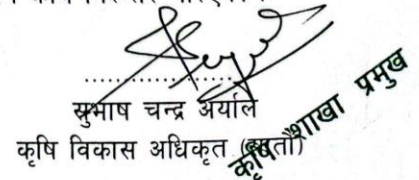 ................................
सुभाष चन्द्र अर्याल
कृषि विकास अधिकृत (सातौं)
कृषि शाखा प्रमुख